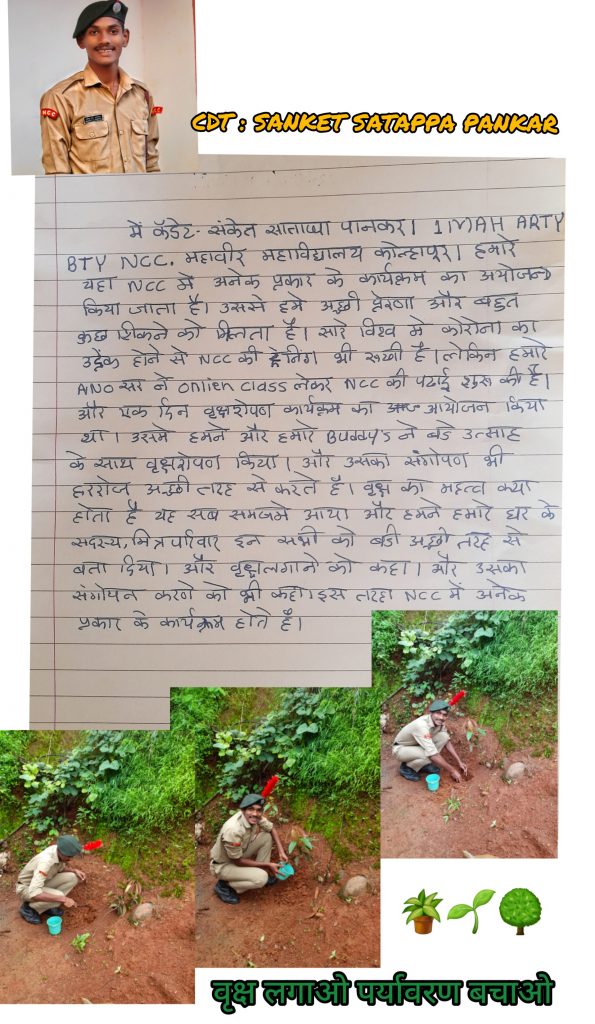 CDT : SANKET SATAPPA PANKAR
NCC
NCC
में कॅडेट- संकेत साताप्पा पानकर। 1 MAH ARTY
BTY NCC. महावीर महाविद्यालय कोल्हापुर। हमारे
यहा NCC में अनेक प्रकार के कार्यक्रम का अयोजन
किया जाता है। उससे हमे अच्छी प्रेरणा और बहुत
कुछ शिकने को मिलता है। सारे विश्व मे कोरोना का
उद्रेक होने से NCC की ट्रेनिंग भी रूखी है। लेकिन हमारे
ANO सर ने onlien class लेकर NCC की पढाई शुरू की है।
और एक दिन वृक्षरोपण कार्यक्रम का आयोजन किया
था। उसमे हमने और हमारे Buddy's ने बडे उत्साह
के साथ वृक्षरोपण किया। और उसका संगोपण भी
हररोज अच्छी तरह से करते है। वृक्ष का महत्व क्या
होता है यह सब समजमे आया और हमने हमारे घर के
सदस्य, मित्र परिवार इन सभी को बडी अच्छी तरह से
बता दिया। और वृक्ष लगाने को कहा। और उसका
संगोपन करणे को भी कहा। इस तरहा NCC में अनेक
प्रकार के कार्यक्रम होते हैं।
वृक्ष लगाओ पर्यावरण बचाओ